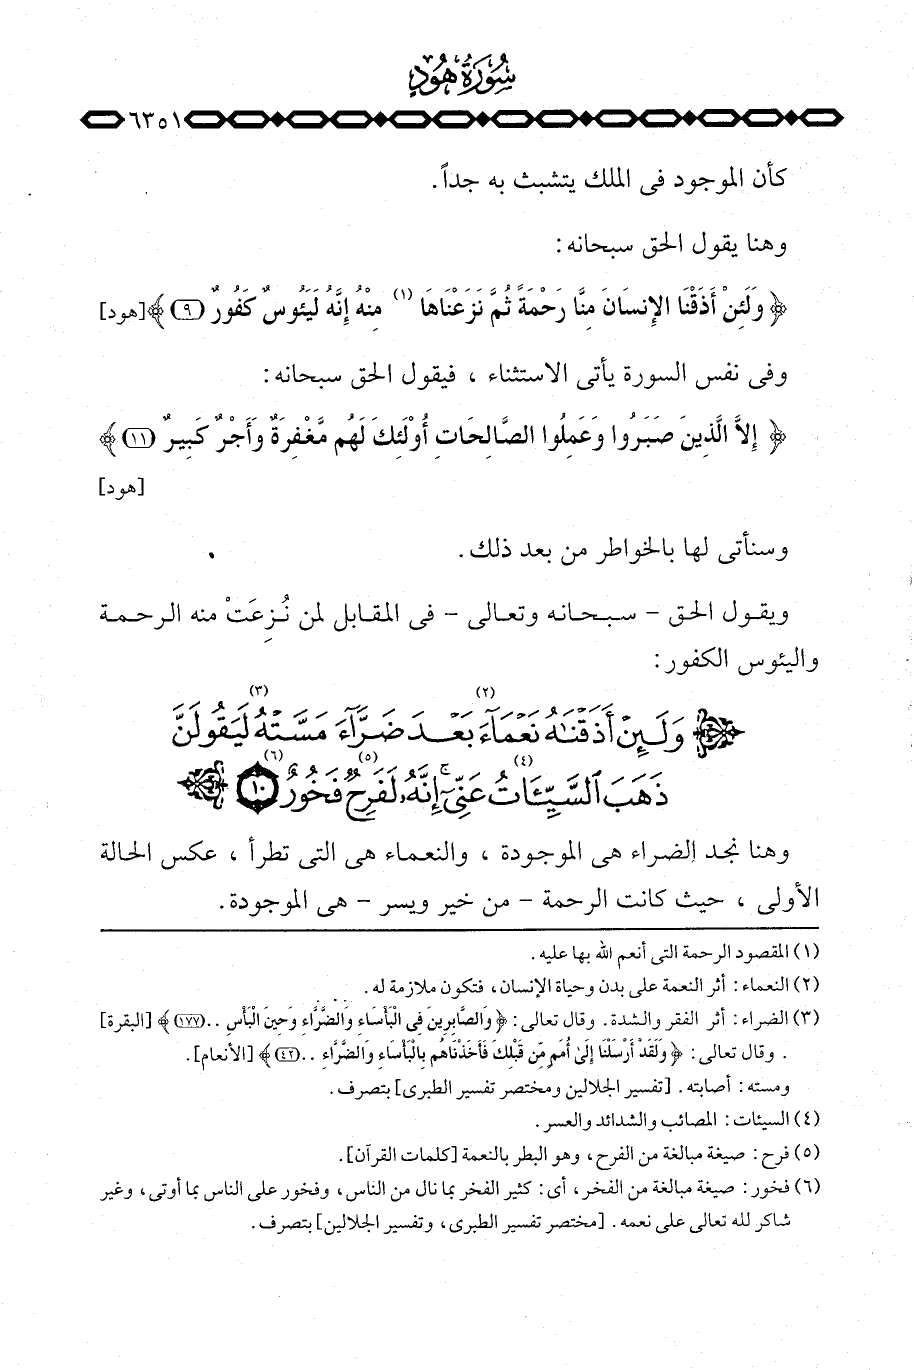 سُورَةُ هُودٍ
٦٣٥١
كأن الموجود فى الملك يتشبث به جداً.
وهنا يقول الحق سبحانه:
﴿ وَلَئِنْ أَذَقْنَا الإِنسَانَ مِنَّا رَحْمَةً ثُمَّ نَزَعْنَاهَا (١) مِنْهُ إِنَّهُ لَيَئُوسٌ كَفُورٌ (٩) ﴾ [هود]
وفى نفس السورة يأتى الاستثناء ، فيقول الحق سبحانه:
﴿ إِلاَّ الَّذِينَ صَبَرُوا وَعَمِلُوا الصَّالِحَاتِ أُوْلَئِكَ لَهُم مَّغْفِرَةٌ وَأَجْرٌ كَبِيرٌ (١١) ﴾
[هود]
وسنأتى لها بالخواطر من بعد ذلك.
ويقول الحق - سبحانه وتعالى - فى المقابل لمن نُزِعَتْ منه الرحمة
واليئوس الكفور:
وَلَئِنْ أَذَقْنَٰهُ نَعْمَآءَ (٢) بَعْدَ ضَرَّآءَ (٣) مَسَّتْهُ لَيَقُولَنَّ
ذَهَبَ ٱلسَّيِّـَٔاتُ (٤) عَنِّىٓ ۚ إِنَّهُۥ لَفَرِحٌ (٥) فَخُورٌ (٦) ١٠
وهنا نجد الضراء هى الموجودة ، والنعماء هى التى تطرأ ، عكس الحالة
الأولى ، حيث كانت الرحمة - من خير ويسر - هى الموجودة.
(١) المقصود الرحمة التى أنعم الله بها عليه.
(٢) النعماء: أثر النعمة على بدن وحياة الإنسان، فتكون ملازمة له.
(٣) الضراء: أثر الفقر والشدة. وقال تعالى: ﴿ وَالصَّابِرِينَ فِي الْبَأْسَاءِ وَالضَّرَّاءِ وَحِينَ الْبَأْسِ .. (١٧٧) ﴾ [البقرة]
. وقال تعالى: ﴿ وَلَقَدْ أَرْسَلْنَا إِلَىٰ أُمَمٍ مِّن قَبْلِكَ فَأَخَذْنَاهُم بِالْبَأْسَاءِ وَالضَّرَّاءِ .. (٤٢) ﴾ [الأنعام].
ومسته: أصابته. [تفسير الجلالين ومختصر تفسير الطبرى] بتصرف.
(٤) السيئات: المصائب والشدائد والعسر.
(٥) فرح: صيغة مبالغة من الفرح، وهو البطر بالنعمة [كلمات القرآن].
(٦) فخور: صيغة مبالغة من الفخر، أى: كثير الفخر بما نال من الناس، وفخور على الناس بما أوتى، وغير
شاكر لله تعالى على نعمه. [مختصر تفسير الطبرى، وتفسير الجلالين] بتصرف.